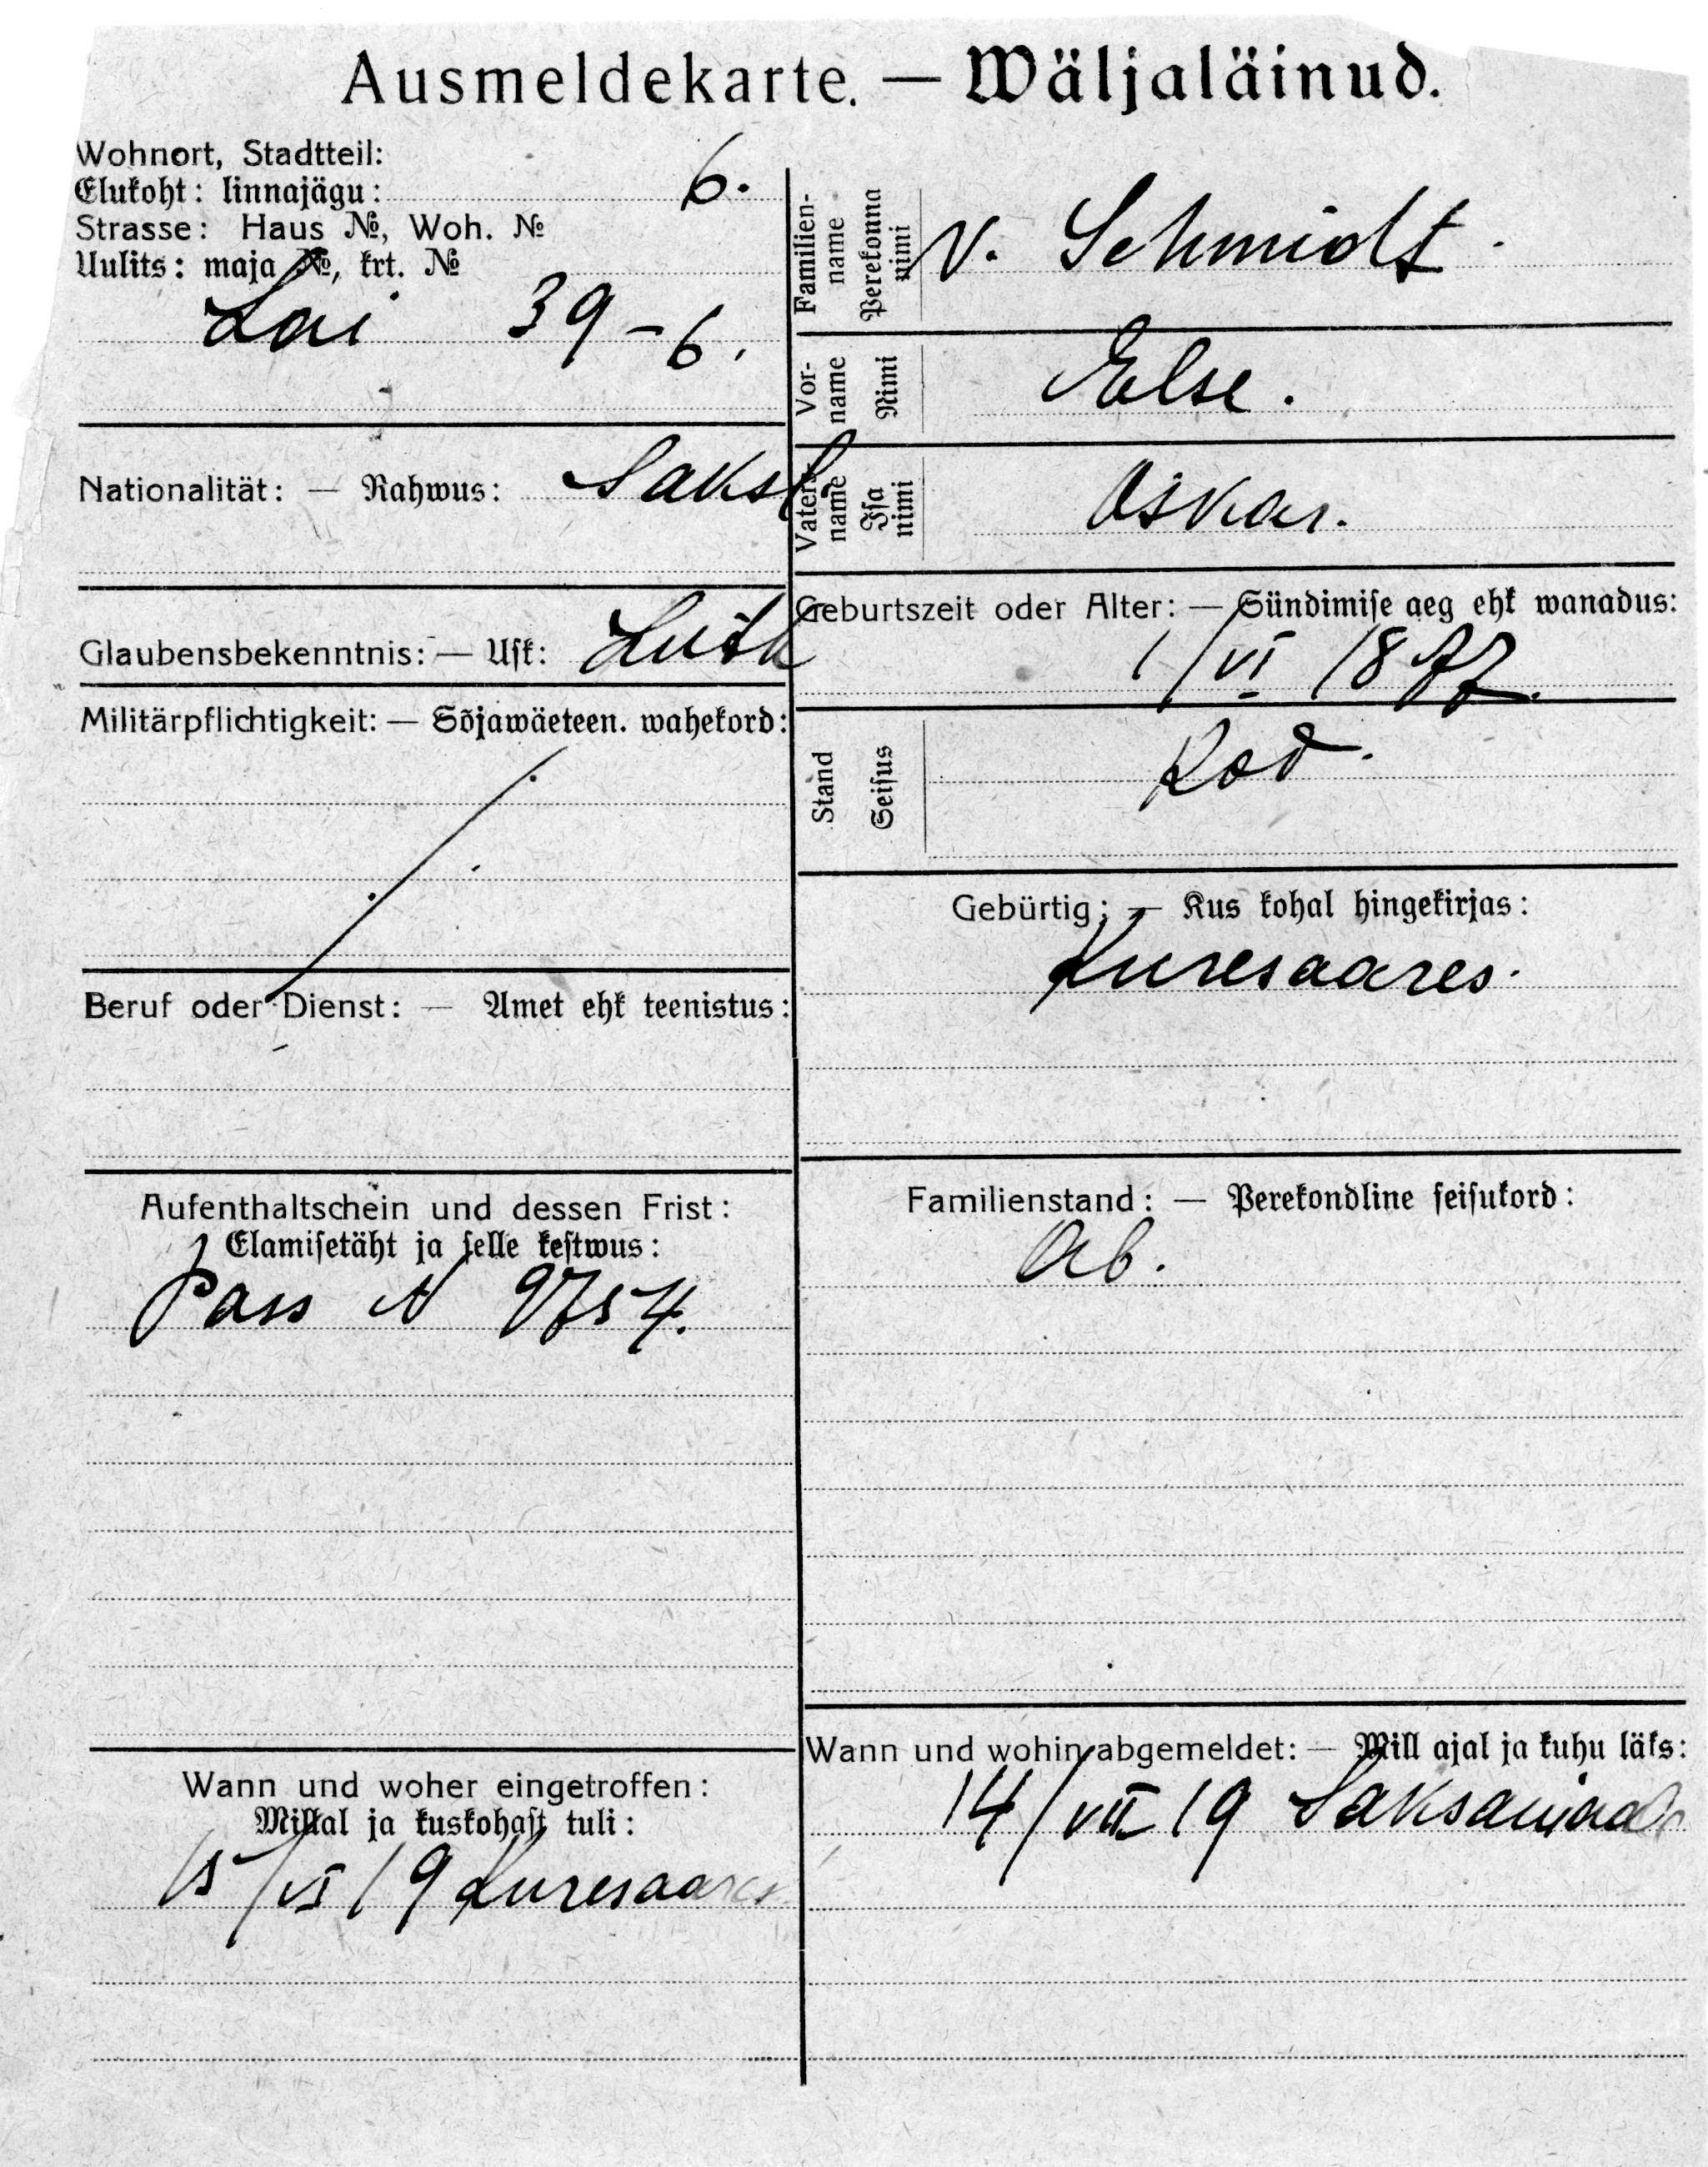 Ausmeldekarte. — Wäljaläinud.
Wohnort, Stadtteil:
Elukoht: linnajägu: 6.
Strasse: Haus №, Woh. №
Uulits: maja №, krt. №
Lai 39-6.
Nationalität: — Rahwus: Saksl
Glaubensbekenntnis: — Usk: Luth
Militärpflichtigkeit: — Sõjawäeteen. wahekord:
Beruf oder Dienst: — Amet ehk teenistus:
Aufenthaltschein und dessen Frist:
Elamisetäht ja selle kestwus:
Pass N 9754.
Wann und woher eingetroffen:
Millal ja kuskohast tuli:
15/VI 19 Kuresaares
Familien-name Perekonna nimi v. Schmidt
Vor-name Nimi Else.
Vaters name Isa nimi Oskar.
Geburtszeit oder Alter: — Sündimise aeg ehk wanadus:
1/VI 1877.
Stand Seisus Kod.
Gebürtig: — Kus kohal hingekirjas:
Kuresaares.
Familienstand: — Perekondline seisukord:
Ab.
Wann und wohin abgemeldet: — Mill ajal ja kuhu läks:
14/VII 19 Saksamaa